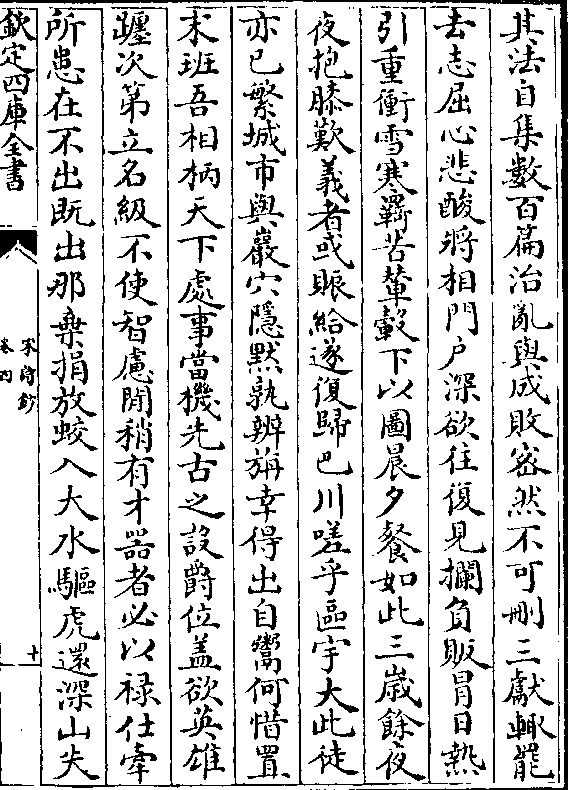 其法自集數百篇治亂與成敗密然不可刪三獻輒罷
去志屈心悲酸將相門戸深欲往復見攔負販冒日熱
引重衝雪寒羇苦輦轂下以圖晨夕餐如此三歳餘夜
夜抱膝歎義者或賑給遂復歸巴川嗟乎區宇大此徒
亦已繁城市與巖穴隱默孰辨旃幸得出自鬻何惜置
末班吾相柄天下處事當機先古之設爵位盖欲英雄
躔次第立名級不使智慮閒稍有才器者必以禄仕牽
所患在不出既出那棄捐放蛟入大水驅虎還深山失
欽定四庫全書
宋詩鈔
卷四
十